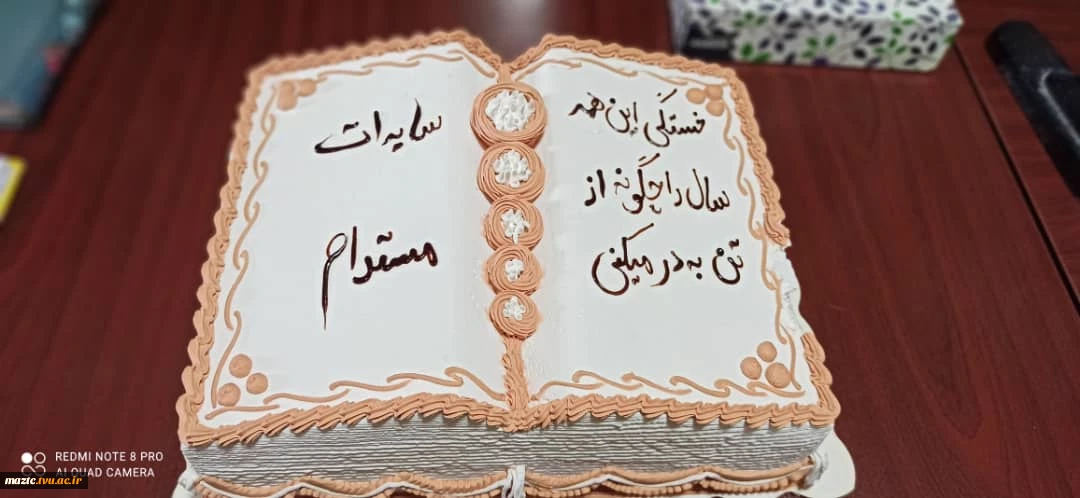 خستگی این همه
سال را چگونه از
تن به در میکنی
سایه ات
مستدام
REDMI NOTE 8 PRO
AI QUAD CAMERA
mazic.tvu.ac.ir